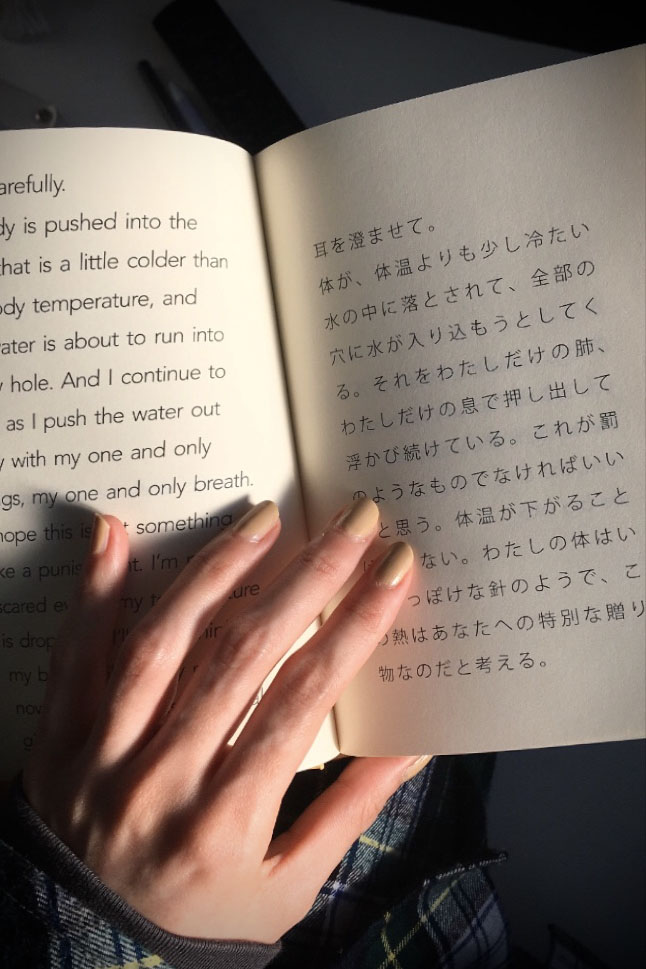 arefully.
dy is pushed into the
that is a little colder than
ody temperature, and
ater is about to run into
y hole. And I continue to
as I push the water out
y with my one and only
gs, my one and only breath.
hope this is something
ke a I'm
scared my
is drop
my
now
耳を澄ませて。
体が、体温よりも少し冷たい
水の中に落とされて、全部の
穴に水が入り込もうとしてく
る。それをわたしだけの肺、
わたしだけの息で押し出して
浮かび続けている。これが罰
のようなものでなければいい
と思う。体温が下がること
ない。わたしの体はい
っぽけな針のようで、こ
の熱はあなたへの特別な贈り
物なのだと考える。